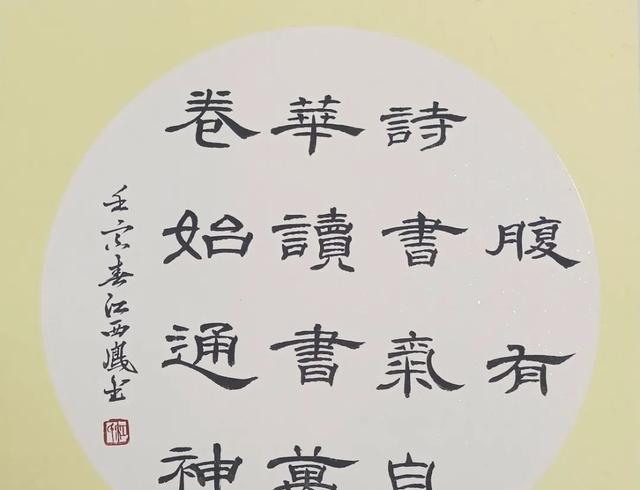 腹有
詩書氣自
華讀書萬
卷始通神
壬寅春江西鳳書